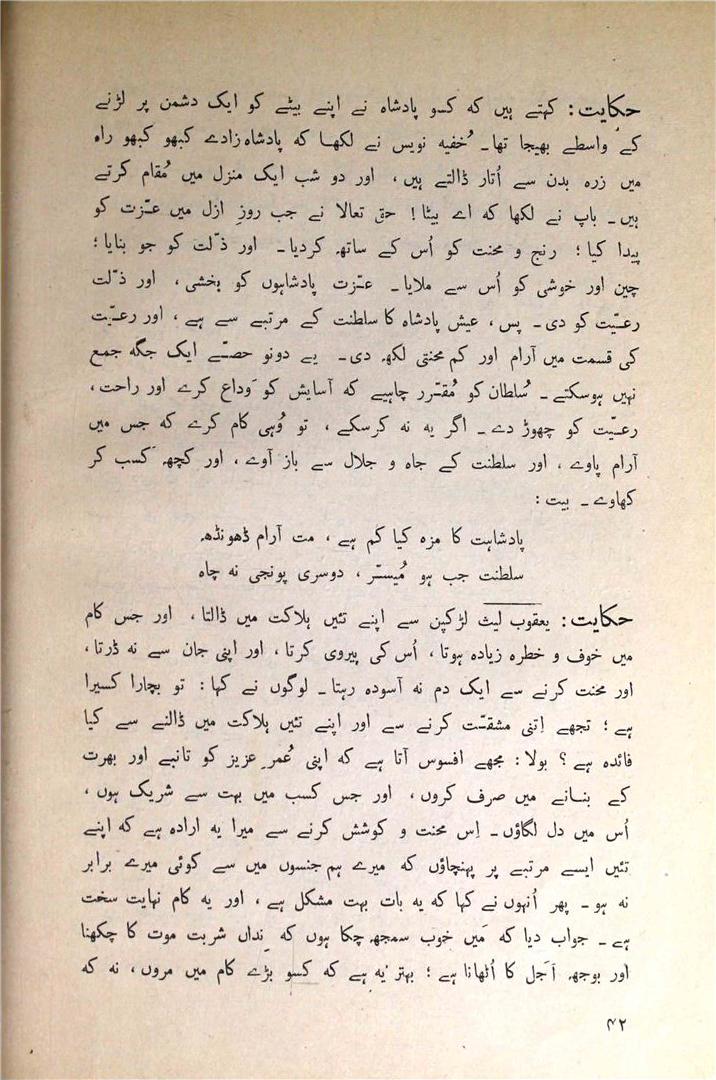 حکایت: کہتے ہیں کہ کسو پادشاہ نے اپنے بیٹے کو ایک دشمن پر لڑنے
کے واسطے بھیجا تھا۔ خُفیہ نویس نے لکھا کہ پادشاہ زادے کبھو کبھو راہ
میں زرہ بدن سے اُتار ڈالتے ہیں، اور دو شب ایک منزل میں مُقام کرتے
ہیں۔ باپ نے لکھا کہ اے بیٹا! حق تعالا نے جب روزِ ازل میں عزّت کو
پیدا کیا؛ رنج و محنت کو اُس کے ساتھ کردیا۔ اور ذلّت کو جو بنایا؛
چین اور خوشی کو اُس سے ملایا۔ عزّت پادشاہوں کو بخشی، اور ذلّت
رعیّت کو دی۔ پس، عیش پادشاہ کا سلطنت کے مرتبے سے ہے، اور رعیّت
کی قسمت میں آرام اور کم محنتی لکھ دی۔ یے دونو حصّے ایک جگہ جمع
نہیں ہوسکتے۔ سُلطان کو مُقرّر چاہیے کہ آسایش کو وَداع کرے اور راحت،
رعیّت کو چھوڑ دے۔ اگر یہ نہ کرسکے، تو وُہی کام کرے کہ جس میں
آرام پاوے، اور سلطنت کے جاہ و جلال سے باز آوے، اور کچھ کَسب کر
کھاوے۔ بیت:
پادشاہت کا مزہ کیا کم ہے، مت آرام ڈھونڈھ
سلطنت جب ہو مُیسّر، دوسری پونجی نہ چاہ
حکایت: یعقوب لیث لڑکپن سے اپنے تئیں ہلاکت میں ڈالتا، اور جس کام
میں خوف و خطرہ زیادہ ہوتا، اُس کی پیروی کرتا، اور اپنی جان سے نہ ڈرتا،
اور محنت کرنے سے ایک دم نہ آسودہ رہتا۔ لوگوں نے کہا: تو بچارا کسیرا
ہے؛ تجھے اِتنی مشقّت کرنے سے اور اپنے تئیں ہلاکت میں ڈالنے سے کیا
فائدہ ہے؟ بولا: مجھے افسوس آتا ہے کہ اپنی عُمرِ عزیز کو تانبے اور بھرت
کے بنانے میں صرف کروں، اور جس کسب میں بہت سے شریک ہوں،
اُس میں دل لگاؤں۔ اِس محنت و کوشش کرنے سے میرا یہ ارادہ ہے کہ اپنے
تئیں ایسے مرتبے پر پہنچاؤں کہ میرے ہم جنسوں میں سے کوئی میرے برابر
نہ ہو۔ پھر اُنہوں نے کہا کہ یہ بات بہت مشکل ہے، اور یہ کام نہایت سخت
ہے۔ جواب دیا کہ مَیں خوب سمجھ چکا ہوں کہ نِداں شربت موت کا چکھنا
اور بوجھ اَجَل کا اُٹھانا ہے؛ بہتر یہ ہے کہ کسو بڑے کام میں مروں، نہ کہ
۴۲